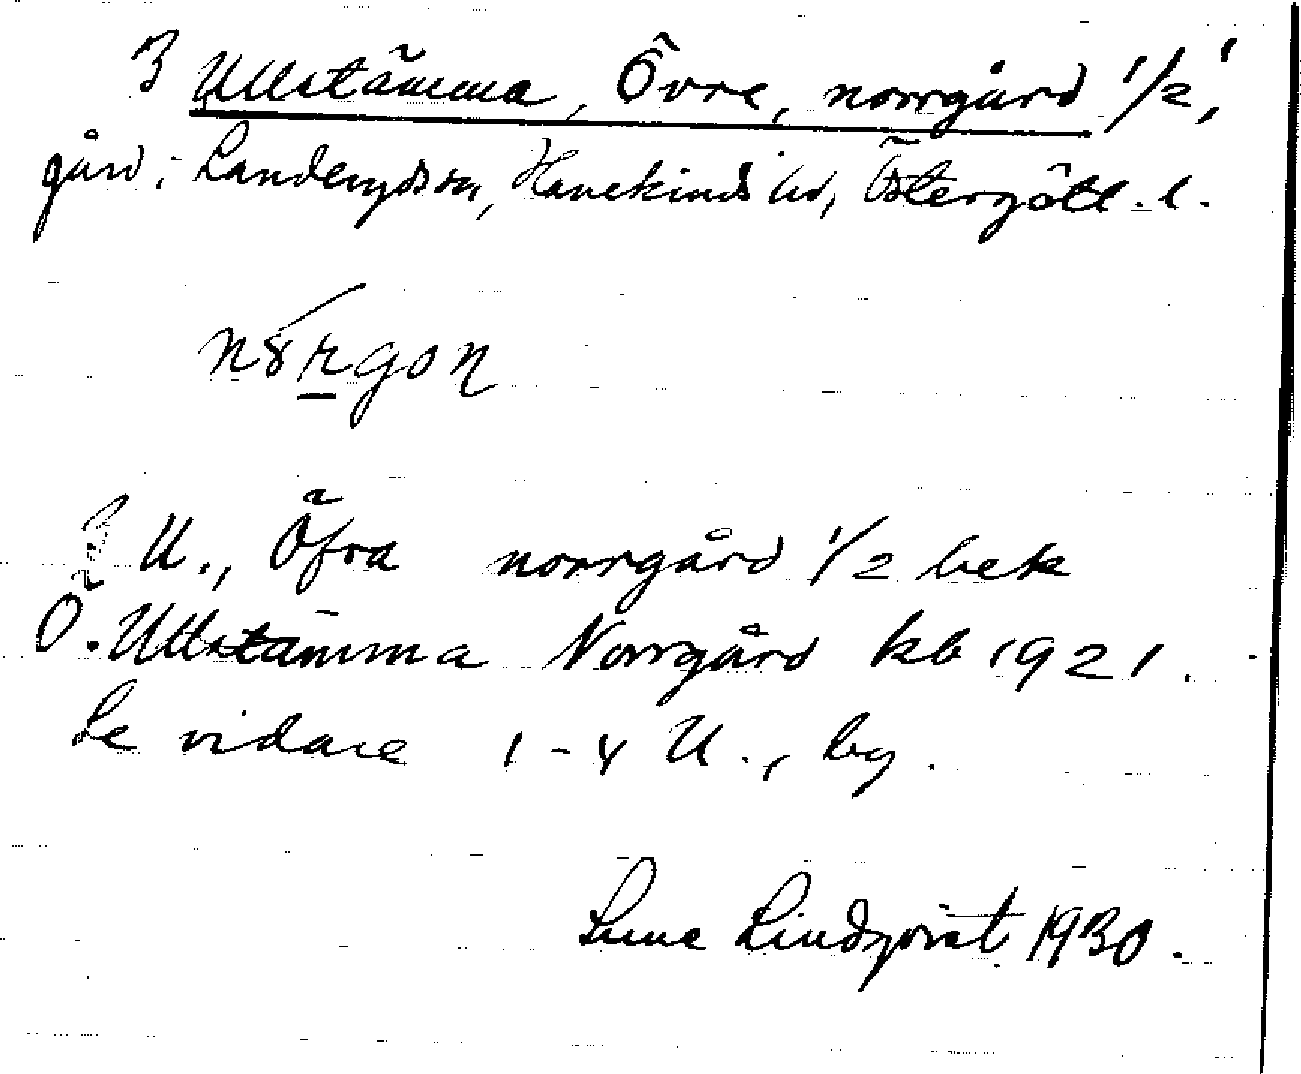 3 Ullstämma, Övre, norrgård 1/2,
gård; Landeryds sn, Hanekinds hd, Östergötl. l.
3 U., Öfra norrgård 1/2 bek
Ö. Ullstämma Norrgård kb 1921.
Se vidare 1-4 U., by.
Sune Lindqvist 1930.